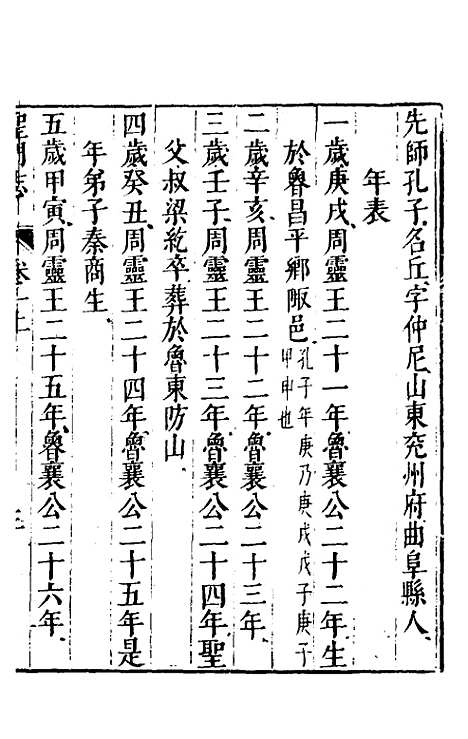 先師孔子名丘字仲尼山東兖州府曲阜縣人
年表
一歲庚戌周靈王二十一年魯襄公二十二年生
於魯昌平鄉陬邑孔子年庚乃庚戌戊子庚子
甲申也
二歲辛亥周靈王二十二年魯襄公二十三年
三歲壬子周靈王二十三年魯襄公二十四年聖
父叔梁紇卒葬於魯東防山
四歲癸丑周靈王二十四年魯襄公二十五年是
年弟子秦商生
五歲甲寅周靈王二十五年魯襄公二十六年
聖門志 卷一上